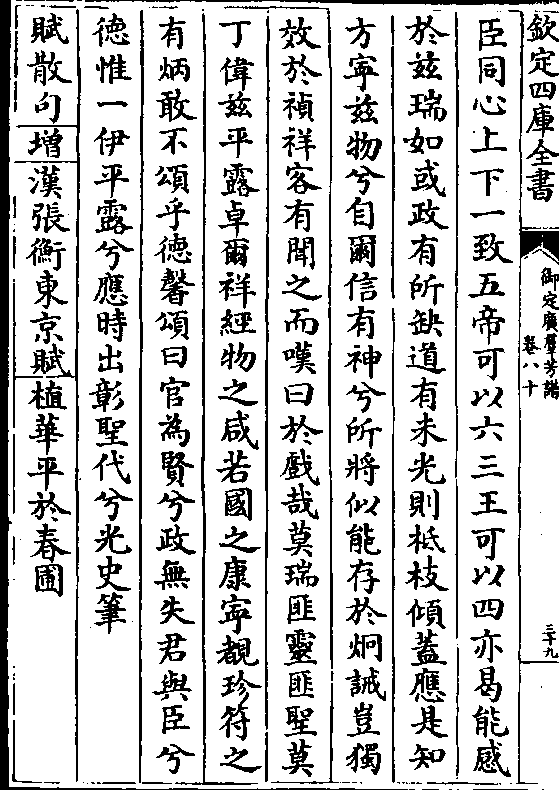 欽定四庫全書
御定廣羣芳譜
卷八十
三十九
臣同心上下一致五帝可以六三王可以四亦曷能感
於兹瑞如或政有所缺道有未光則柢枝傾蓋應是知
方寧兹物兮自爾信有神兮所將似能存於炯誡豈獨
效於禎祥客有聞之而嘆曰於戲哉莫瑞匪靈匪聖莫
丁偉兹平露卓爾祥經物之咸若國之康寧覩珍符之
有炳敢不頌乎德馨頌曰官為賢兮政無失君與臣兮
德惟一伊平露兮應時出彰聖代兮光史筆
賦散句增漢張衡東京賦植華平於春圃